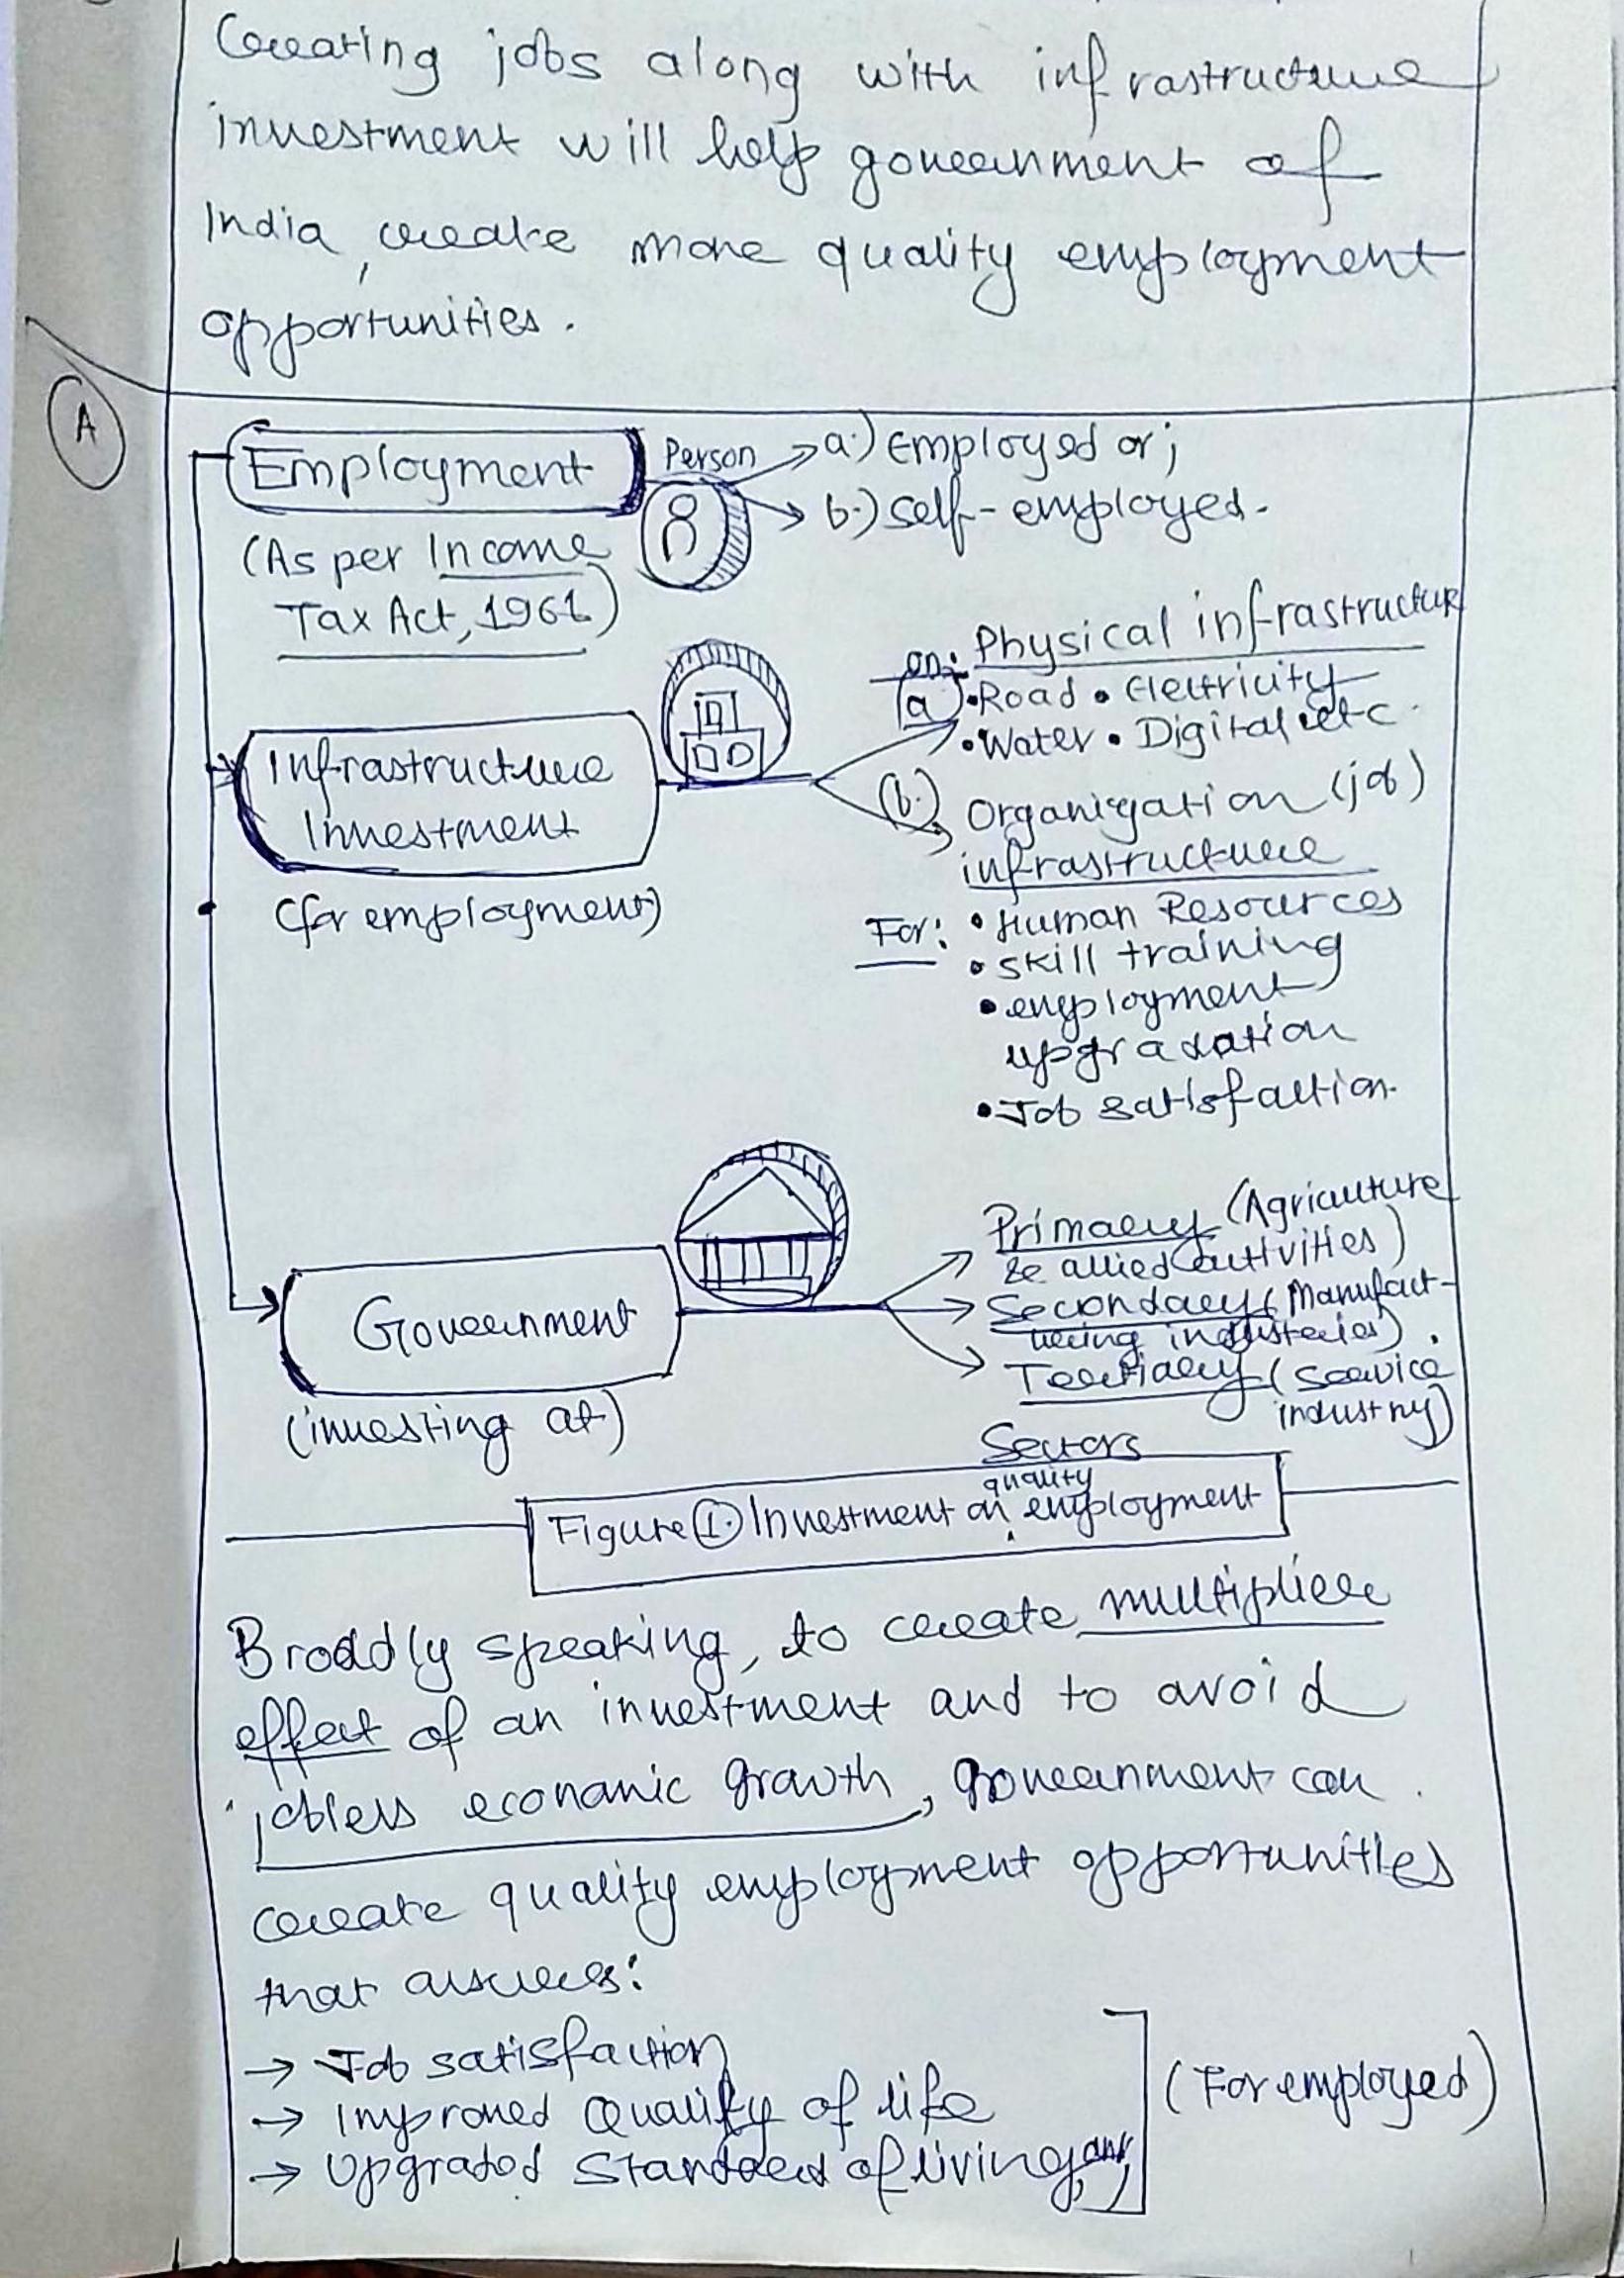 Creating jobs along with infrastructure
investment will help government of
India, create more quality employment
opportunities.
A
Employment
Person
a.) Employed or;
b.) Self-employed.
(As per Income
Tax Act, 1961)
Infrastructure
Investment
(for employment)
on:
Physical infrastructur
(a) • Road • Electricity
• Water • Digital etc.
(b.) Organisation (job)
infrastructure
For: • Human Resources
• Skill training
• employment
upgradation
• Job satisfaction.
Government
(investing at)
Primary (Agriculture
& allied activities)
Secondary (Manufact-
uring industries).
Tertiary (Service
industry)
Sectors
Figure 1. Investment on quality employment
Broadly speaking, to create multiplier
effect of an investment and to avoid
jobless economic growth, government can
create quality employment opportunities
that assures:
→ Job satisfaction
→ Improved Quality of life
→ Upgraded Standard of living, and
(For employed)